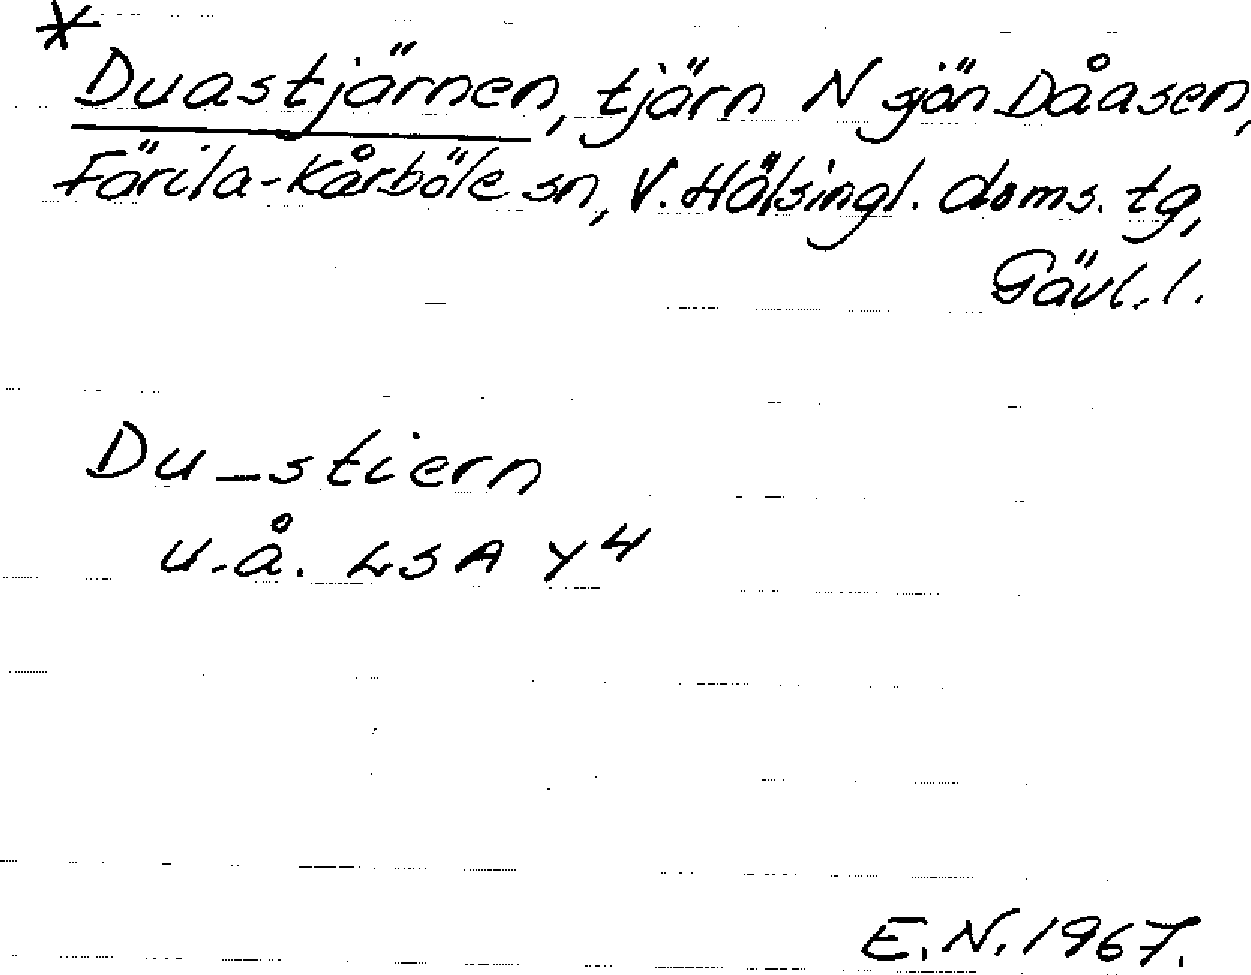 *
Duastjärnen, tjärn N sjön Dåasen,
Färila-Kårböle sn, V. Hälsingl. doms. tg,
Gävl. l.
Du-stiern
u.å. LSA Y4
E.N. 1967.